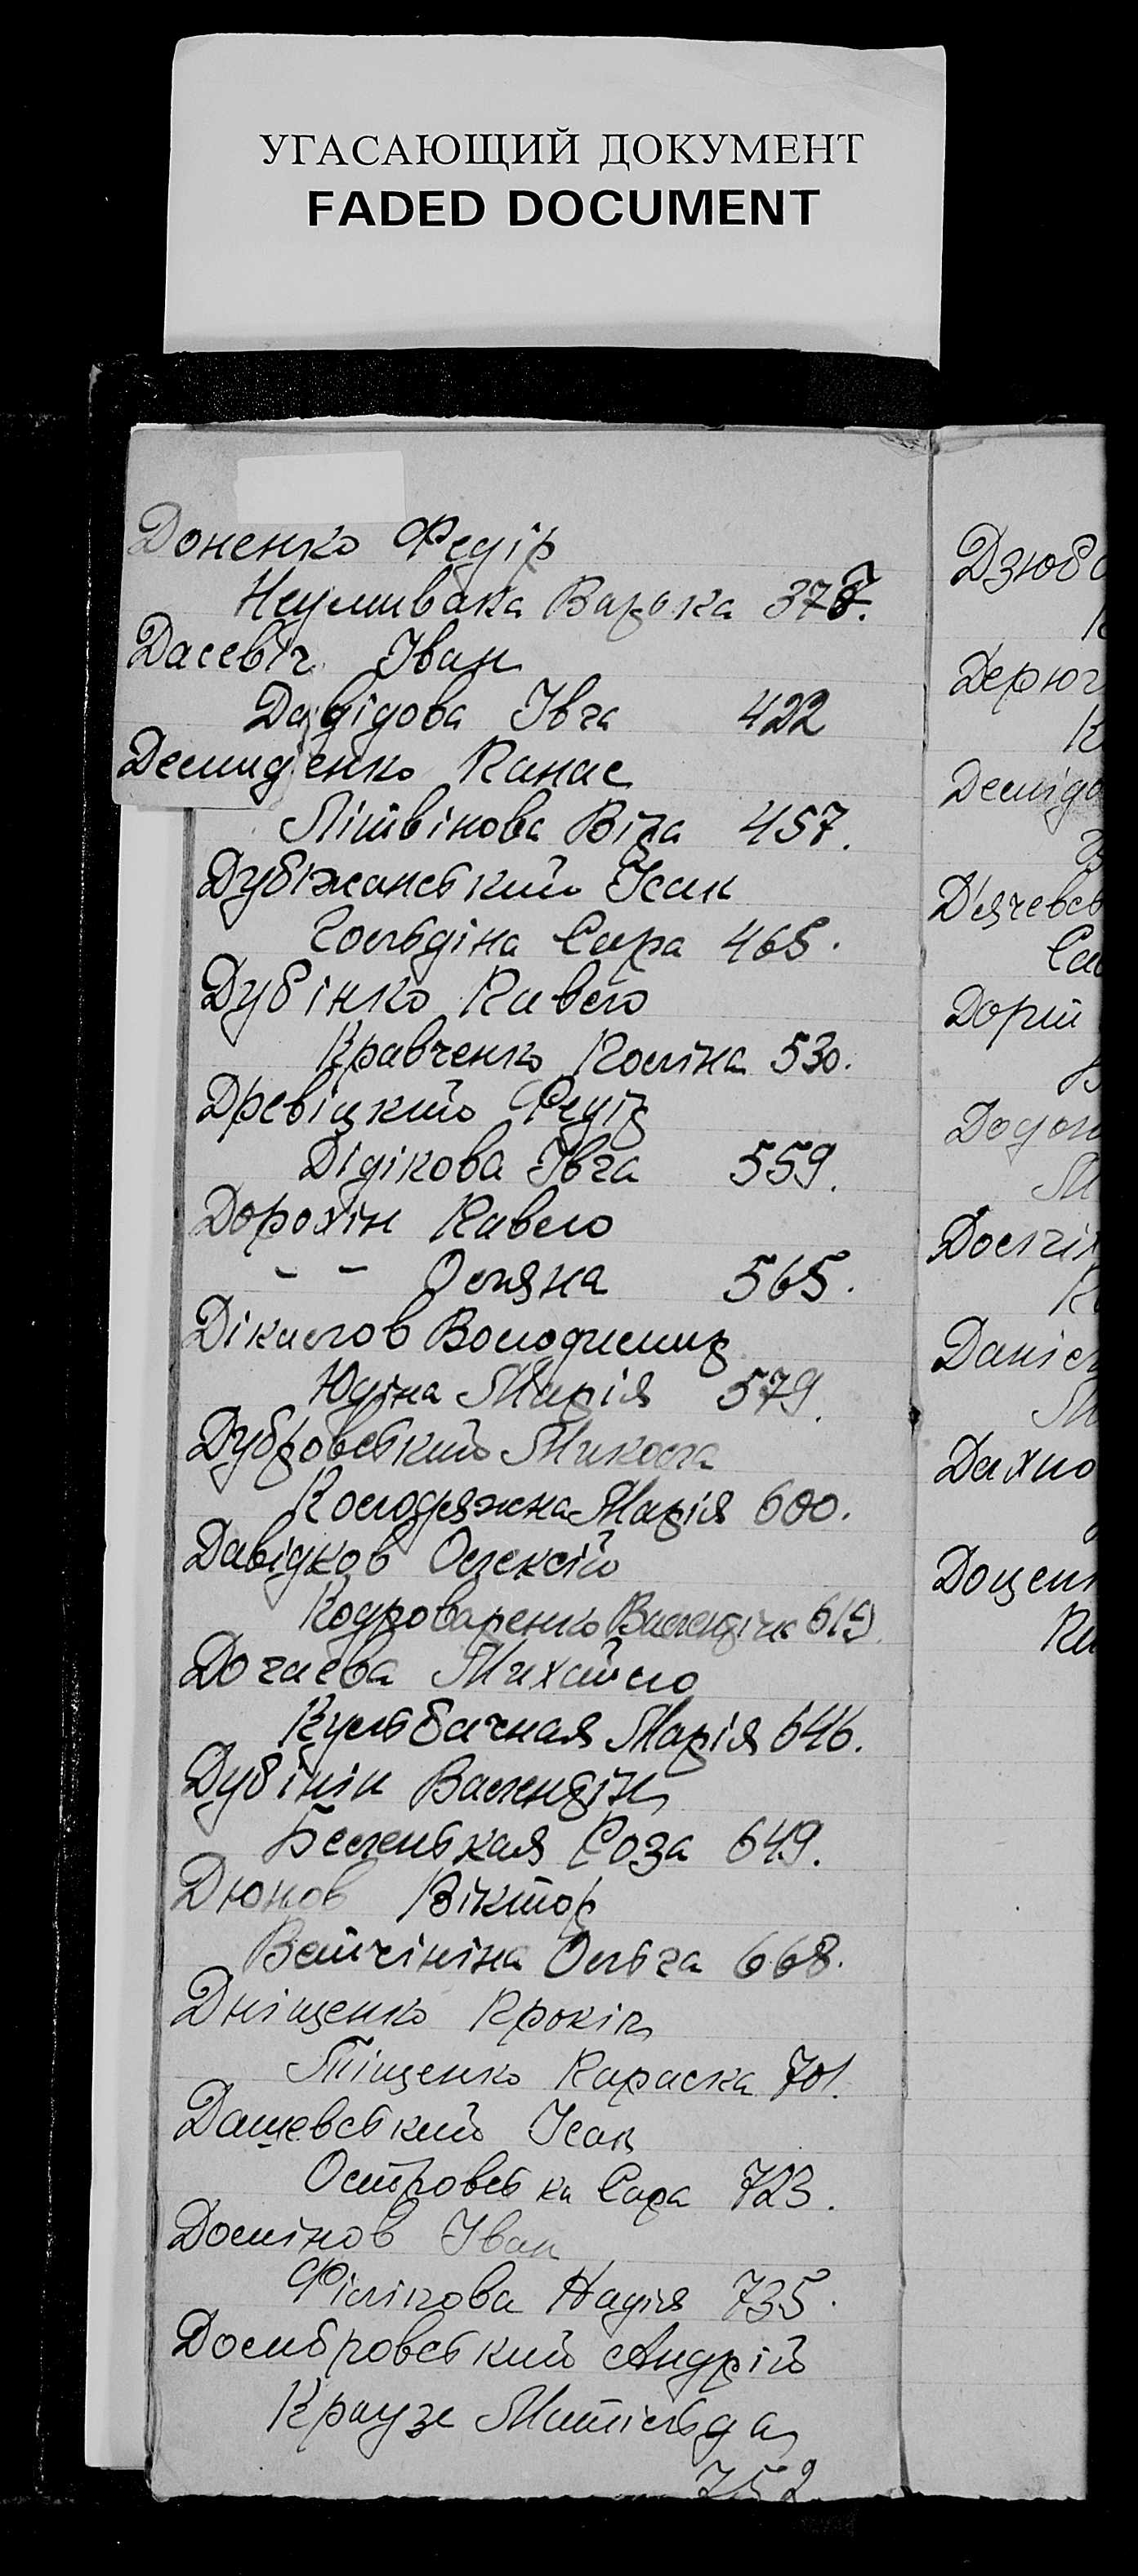 УГАСАЮЩИЙ ДОКУМЕНТ
FADED DOCUMENT
Доненко Федір
Неумивака Варька 377.
Дасевіч Іван
Давідова Івга 422
Демиденко Панас
Літвінова Віра 457.
Дубіжанський Ісак
Гольдіна Сара 465.
Дубінко Павло
Кравченко Поліна 530.
Древіцкий Федір
Дідікова Івга 559.
Дорохін Павло
- - Уляна 565.
Дікалов Володимир
Юдіна Марія 579.
Дубровський Микола
Колодяжна Марія 600.
Давідков Олексій
Подроваренко Валентіна 619
Дочаєва Михайло
Кульбачная Марія 646.
Дубінін Валентін
Беленькая Роза 649.
Дюнов Віктор
Ветчініна Ольга 668.
Дніщенко Прокіп
Тіщенко Параска 701.
Дашевський Ісак
Островська Сара 723.
Домінов Іван
Філіпова Надія 735.
Домбровський Андрій
Краузе Матільда
752
Дзюб
Дерюг
Деміда
Дячевсь
Са
Дорш
Додон
М
Долгіх
Даніел
М
Дахно
Доцен